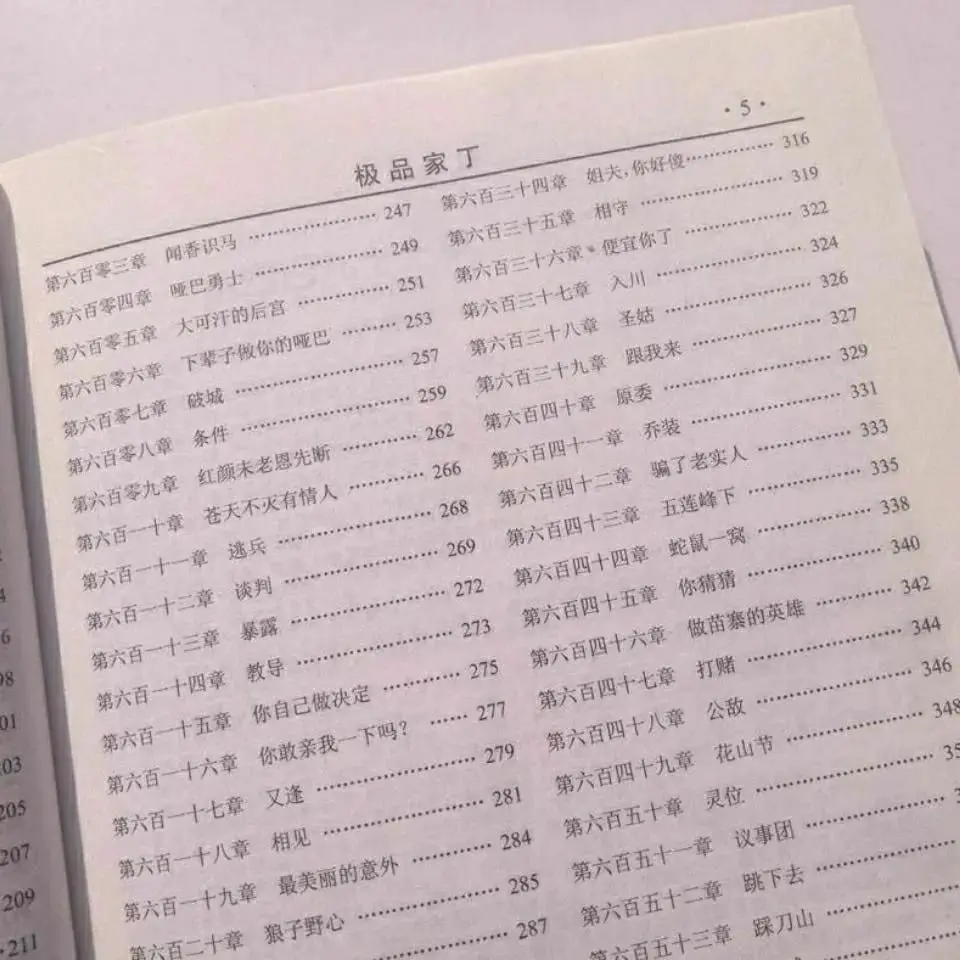 98
01
03
205
207
209
·211
·5·
极品家丁
第六百零三章 闻香识马 ………………… 247
第六百零四章 哑巴勇士 ………………… 249
第六百零五章 大可汗的后宫 …………… 251
第六百零六章 下辈子做你的哑巴 ……… 253
第六百零七章 破城 ……………………… 257
第六百零八章 条件 ……………………… 259
第六百零九章 红颜未老恩先断 ………… 262
第六百一十章 苍天不灭有情人 ………… 266
第六百一十一章 逃兵 …………………… 268
第六百一十二章 谈判 …………………… 269
第六百一十三章 暴露 …………………… 272
第六百一十四章 教导 …………………… 273
第六百一十五章 你自己做决定 ………… 275
第六百一十六章 你敢亲我一下吗? …… 277
第六百一十七章 又逢 …………………… 279
第六百一十八章 相见 …………………… 281
第六百一十九章 最美丽的意外 ………… 284
第六百二十章 狼子野心 ………………… 285
287
第六百三十四章 姐夫,你好傻…………… 316
第六百三十五章 相守 …………………… 319
第六百三十六章 便宜你了 ……………… 322
第六百三十七章 入川 …………………… 324
第六百三十八章 圣姑 …………………… 326
第六百三十九章 跟我来 ………………… 327
第六百四十章 原委 ……………………… 329
第六百四十一章 乔装 …………………… 331
第六百四十二章 骗了老实人 …………… 333
第六百四十三章 五莲峰下 ……………… 335
第六百四十四章 蛇鼠一窝 ……………… 338
第六百四十五章 你猜猜 ………………… 340
第六百四十六章 做苗寨的英雄 ………… 342
第六百四十七章 打赌 …………………… 344
第六百四十八章 公敌 …………………… 346
第六百四十九章 花山节 ………………… 348
第六百五十章 灵位 ……………………… 35
第六百五十一章 议事团 …………………
第六百五十二章 跳下去 …………………
第六百五十三章 踩刀山 …………………